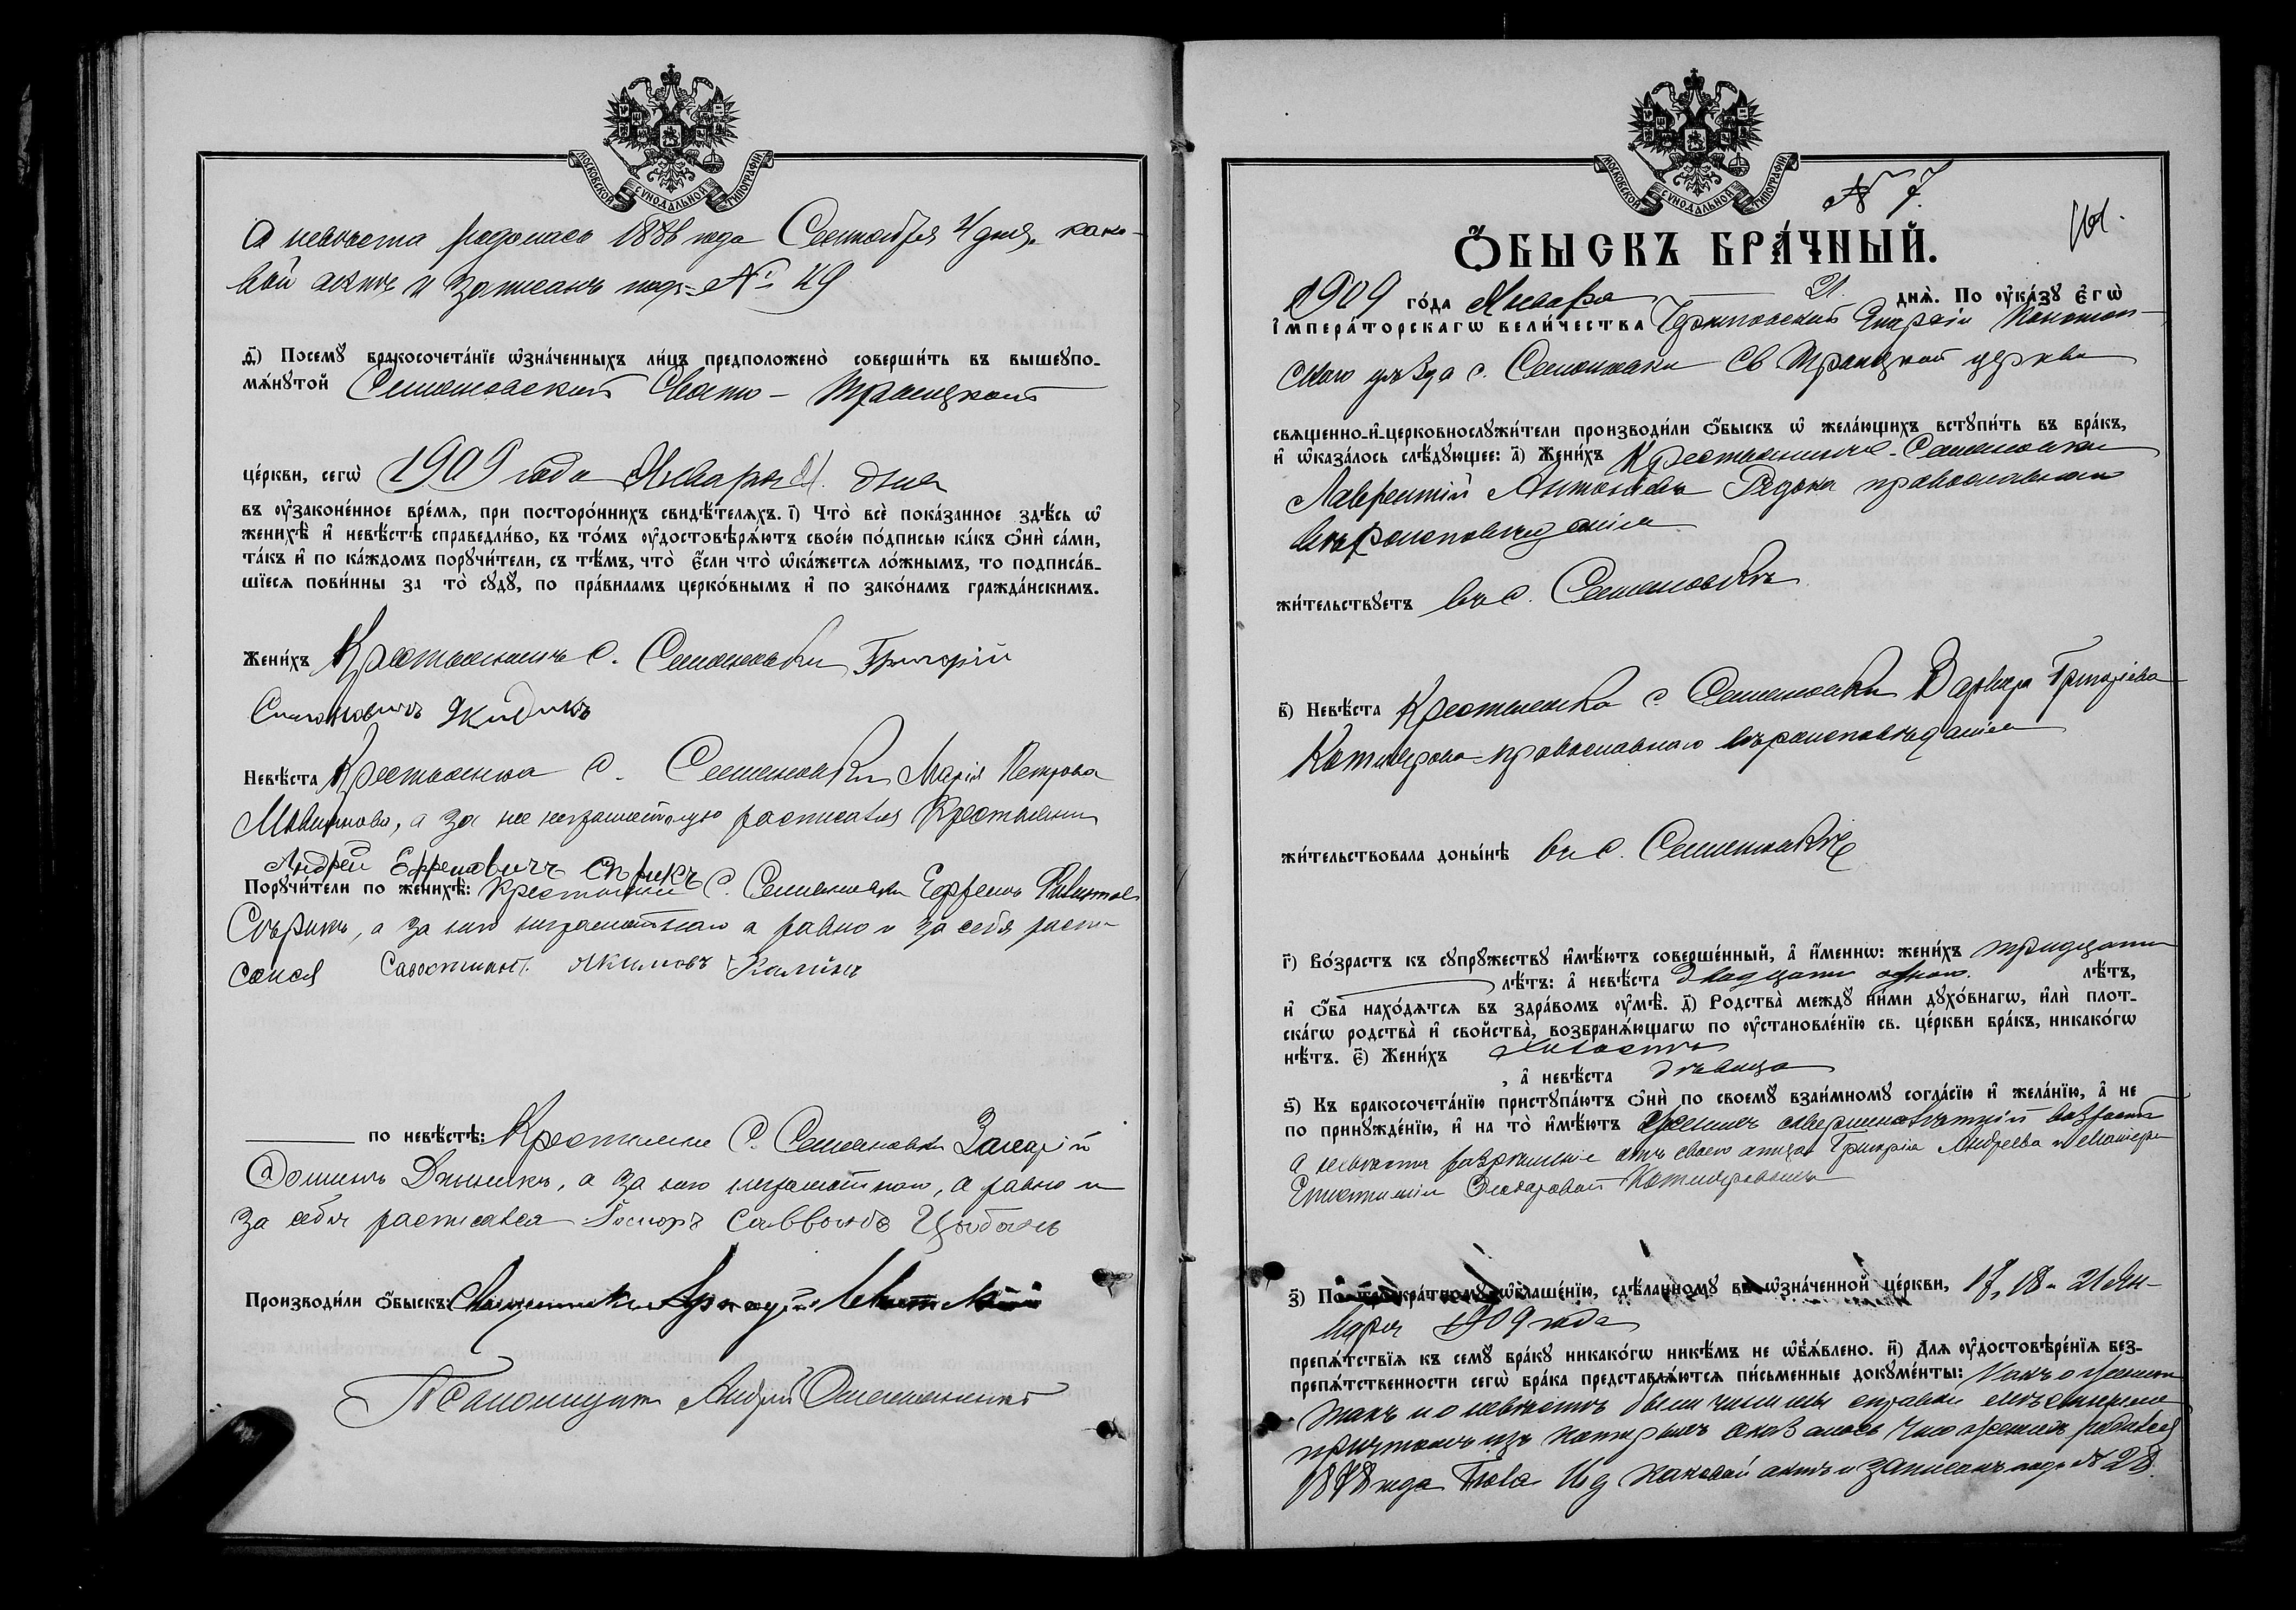 МОСКОВСКОЙ СѴНОДАЛЬНОЙ ТИПОГРАФІИ
А невѣста родилась 1888 года Сентября 4 дня, како-
вой актъ и записанъ подъ № 49
ѳ҃) Посемꙋ бракосочета́нїе ѡ҆зна́ченныхъ ли́цъ предположено̀ соверши́ть въ вышеꙋпо-
мѧ́нꙋтой Семеновской Свято-Троицкой
це́ркви, сегѡ̀ 1909 года Января 21. дня
въ ᲂу҆законе́нное вре́мѧ, при посторо́ннихъ свидѣ́телѧхъ. і҃) Что̀ всѐ пока́занное здѣ́сь ѡ҆
женихѣ̀ и҆ невѣ́стѣ справедли́во, въ то́мъ ᲂу҆достовѣрѧ́ютъ свое́ю по́дписью ка́къ ѻ҆нѝ са́ми,
та́къ и҆ по ка́ждомъ порꙋчи́тели, съ тѣ́мъ, что̀ є҆́сли что̀ ѡ҆ка́жетсѧ ло́жнымъ, то подписа́в-
шїесѧ пови́нны за то̀ сꙋдꙋ̀, по пра́виламъ церко́внымъ и҆ по зако́намъ гражда́нскимъ.
Жени́хъ Крестьянинъ с. Семеновки Григорій
Симоновичъ Жидикъ
Невѣ́ста Крестьянка с. Семеновки Марія Петрова
а за нее неграмотную расписался Крестьянин
Андрей Ефремовичъ
Порꙋчи́тели по женихѣ̀: Крестьянин с. Семеновки Ефремъ
а за него неграмотнаго а равно и за себя распи-
сался Савостиянъ Якимовъ Калина
по невѣ́стѣ: Крестьянин с. Семеновки Захарій
а за него неграмотнаго, а равно и
за себя расписался Савво Цыбань
Производи́ли ѻ҆́быскъ: Священникъ
Псаломщик Андрей
МОСКОВСКОЙ СѴНОДАЛЬНОЙ ТИПОГРАФІИ
№ 7.
Ѻ҆́БЫСКЪ БРА́ЧНЫЙ.
1909 го́да Января 21 днѧ̀. По ᲂу҆ка́зꙋ Є҆гѡ̀
І҆мпера́торскагѡ вели́чества Черниговской Епархіи Конотоп-
скаго уѣзда с. Семеновки Св Троицкой церкви
свѧщенно-и҆-церковнослꙋжи́тели производи́ли ѻ҆́быскъ ѡ҆ жела́ющихъ встꙋпи́ть въ бра́къ,
и҆ ѡ҆каза́лось слѣ́дꙋющее: а҃) Жени́хъ Крестьянинъ Семеновки
Лаврентій Антоніевъ Редька православнаго
вѣроисповѣданія
жи́тельствꙋетъ въ с. Семеновкѣ
в҃) Невѣ́ста Крестьянка с. Семеновки Варвара Григоріева
православнаго вѣроисповѣданія
жи́тельствовала доны́нѣ въ с. Семеновкѣ
г҃) Во́зрастъ къ сꙋпрꙋ́жествꙋ и҆мѣ́ютъ соверше́нный, а҆ и҆́меннѡ: жени́хъ тридцати
лѣ́тъ: а҆ невѣ́ста двадцати одного лѣ́тъ,
и҆ ѻ҆́ба нахо́дѧтсѧ въ здра́вомъ ᲂу҆мѣ̀. д҃) Родства̀ междꙋ̀ ни́ми дꙋхо́внагѡ, и҆лѝ плот-
ска́гѡ родства̀ и҆ сво́йства̀, возбранѧ́ющагѡ по ᲂу҆становле́нїю св. це́ркви бра́къ, никако́гѡ
нѣ́тъ. є҃) Жени́хъ холостъ
, а҆ невѣ́ста дѣвица
ѕ҃) Къ бракосочета́нїю пристꙋпа́ютъ ѻ҆нѝ по своемꙋ̀ взаи́мномꙋ согла́сїю и҆ жела́нїю, а҆ не
по принꙋжде́нїю, и҆ на то̀ и҆мѣ́ютъ женихъ совершеннолѣтній возрастъ
а невѣста разрѣшеніе отъ своего отца Григорія Андреева и матери
з҃) По троекра́тномꙋ ѡ҆глаше́нїю, сдѣ́ланномꙋ въ ѡ҆зна́ченной це́ркви, 17, 18 и 21 Ян-
варя 1909 года
препѧ́тствїѧ къ семꙋ̀ бра́кꙋ никако́гѡ никѣ́мъ не ѡ҆б̾ѧ́влено. и҃) Длѧ ᲂу҆достовѣре́нїѧ без-
препѧ́тственности сегѡ̀ бра́ка представлѧ́ютсѧ пи́сьменные докꙋме́нты: Какъ о женихѣ
такъ и о невѣстѣ были чинимы справки мѣстнымъ
причтомъ изъ которыхъ оказалось что женихъ родился
1878 года каковой актъ и записанъ подъ № 28.